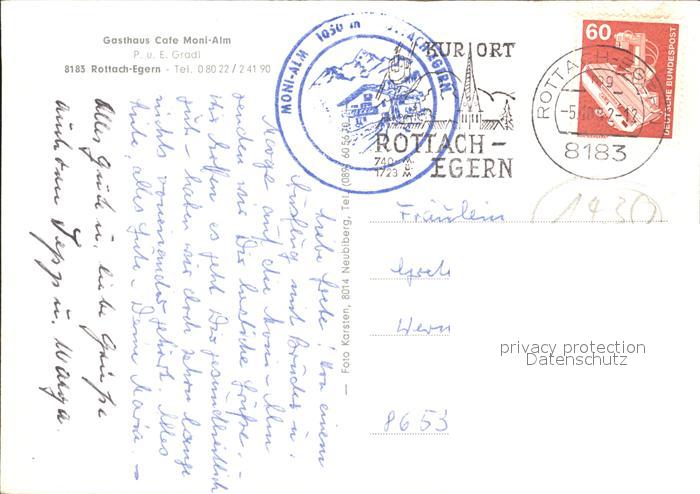 Gasthaus Cafe Moni-Alm
P. u. E. Gradl
8183 Rottach-Egern - Tel. 0 80 22 / 2 41 90
MONI-ALM 1050 m
KURORT
ROTTACH-
EGERN
740-M
1723 M
ROTTA
8183
60
DEUTSCHE BUNDESPOST
1430
Liebe Grete! Von einem
Ausflug mit Bruder u.
Marga auf die Moni-Alm
senden wir Dir herzliche Grüße. -
Wir hoffen es geht Dir gesundheitlich
gut, haben wir doch schon lange
nichts voneinander gehört. Alles
Liebe, alles Gute - Deine Maria. -
Alles Gute u. liebe Grüße
auch von Sepp u. Marga.
— Foto Karsten, 8014 Neubiberg, Tel. (089) 60 56
Fräulein
Grete
Wern
8653
privacy protection
Datenschutz